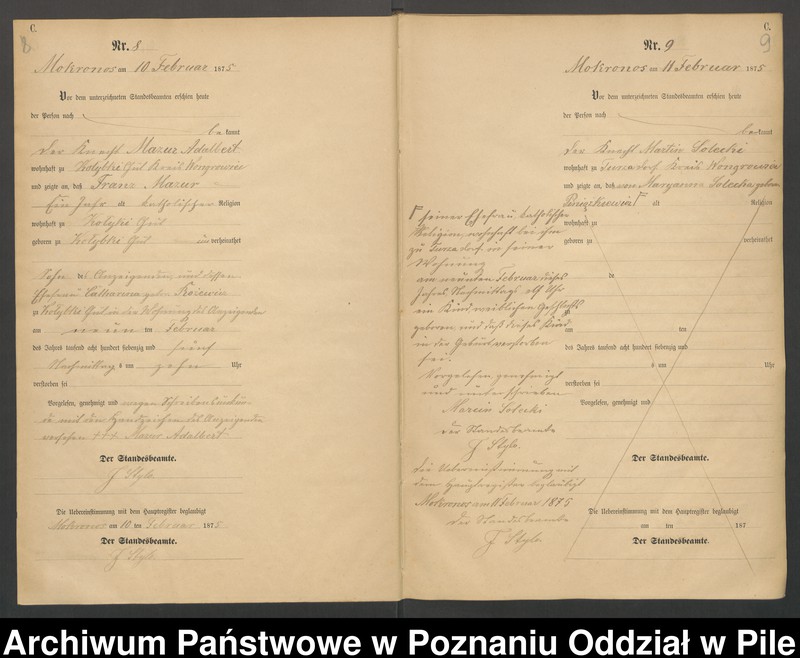 C.
8
Nr. 8
Mokronos am 10 Februar 1875
Vor dem unterzeichneten Standesbeamten erschien heute
der Person nach
bekannt
der Knecht Mazur Adalbert
wohnhaft zu Kolybki Gut Kreis Wongrowiec
und zeigte an, daß Franz Mazur
Ein Jahr alt katholischer Religion
wohnhaft zu Kolybki Gut
geboren zu Kolybki Gut unverheirathet
Sohn des Anzeigenden und dessen
Ehefrau geborn
zu Kolybki Gut in der Wohnung des Anzeigenden
am neun ten Februar
des Jahres tausend acht hundert siebenzig und fünf
Nachmittag s um zehn Uhr
verstorben sei
Vorgelesen, genehmigt und wegen
mit dem Handzeichen des Anzeigenden
versehen +++ Mazur Adalbert
Der Standesbeamte.
J Stylo.
Die Uebereinstimmung mit dem Hauptregister beglaubigt
Mokronos am 10 ten Februar 1875
Der Standesbeamte.
J Stylo.
C.
9
Nr. 9
Mokronos am 11 Februar 1875
Vor dem unterzeichneten Standesbeamten erschien heute
der Person nach
bekannt
der Knecht Martin Solecki
wohnhaft zu dorf Kreis Wongrowiec
und zeigte an, daß von Maryanna Solecka geborn
alt Religion
wohnhaft zu
geboren zu verheirathet
de
zu
am ten
des Jahres tausend acht hundert siebenzig und
s um Uhr
verstorben sei
Vorgelesen, genehmigt und
Der Standesbeamte.
Die Uebereinstimmung mit dem Hauptregister beglaubigt
am ten 187
Der Standesbeamte.
seiner Ehefrau katholischer
Religion, wohnhaft bei ihm
zu dorf in seiner
Wohnung
am neunten Februar dieses
Jahres Nachmittags elf Uhr
ein Kind weiblichen Geschlechts
geboren und daß dieses Kind
in der Geburt verstorben
sei.
Vorgelesen, genehmigt
und unterschrieben
Marcin Solecki
Der Standesbeamte
J Stylo.
Die Uebereinstimmung mit
dem Hauptregister beglaubigt
Mokronos am 11 Februar 1875
Der Standesbeamte
J Stylo.
Archiwum Państwowe w Poznaniu Oddział w Pile